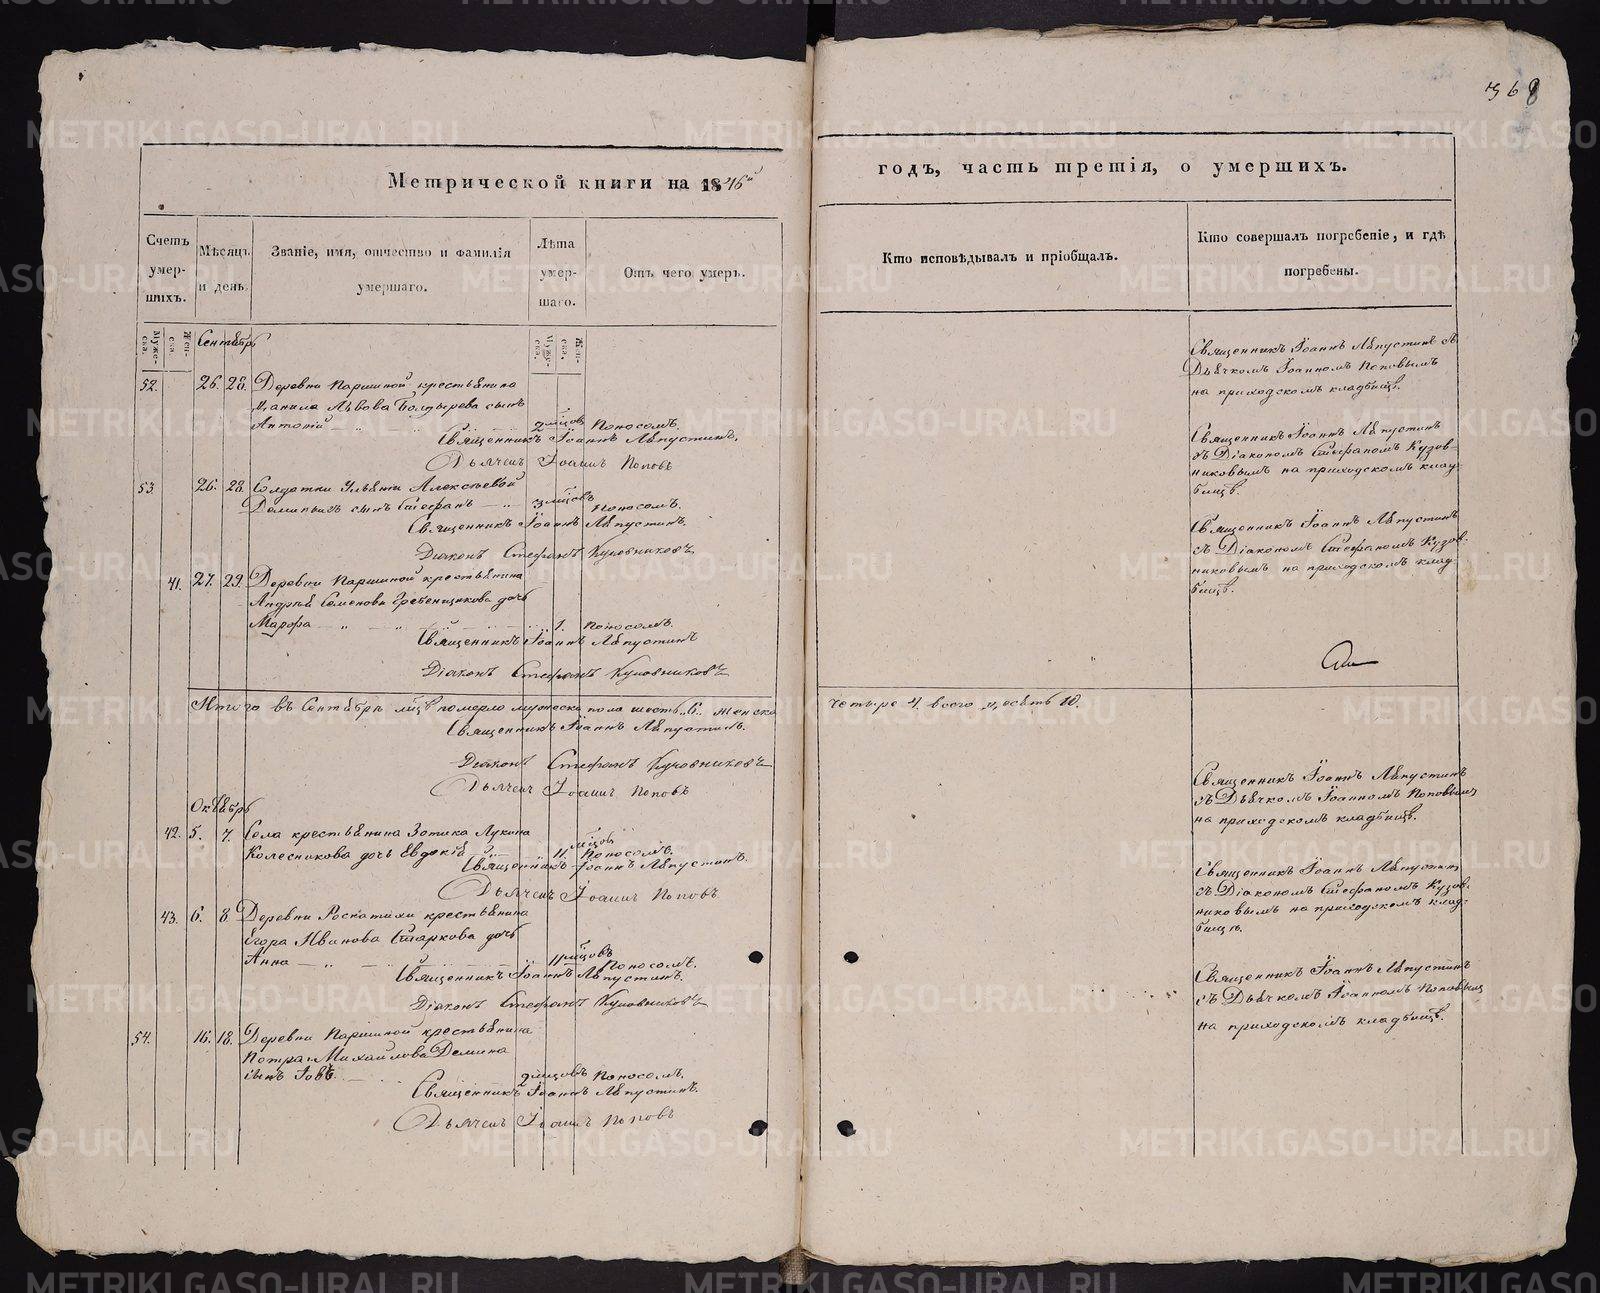 368
Метрической книги на 1846й
годъ, часть третія, о умершихъ.
Счетъ умер-шихъ.
Мѣсяцъ и день.
Званіе, имя, отчество и фамилія умершаго.
Лѣта умер-шаго.
Отъ чего умеръ.
Кто исповѣдывалъ и пріобщалъ.
Кто совершалъ погребеніе, и гдѣ погребены.
Муже-ска.
Жен-ска.
Муже-ска.
Жен-ска.
Сентябрь
52. 26. 28. Деревни Паршиной крестьянина
Данила Львова Болдырева сынъ
Антоній 2 мцов Поносомъ.
Священникъ Іоаннъ Лѣпустинъ.
Дьячекъ Іоаннъ Поповъ
Священникъ Іоаннъ Лѣпустинъ съ
Дьячкомъ Іоанномъ Поповымъ
на приходскомъ кладбищѣ.
53. 26. 28. Солдатки Ульяніи Алексѣевой
Деминыхъ сынъ Стефанъ 3 мцовъ Поносомъ.
Священникъ Іоаннъ Лѣпустинъ.
Діаконъ Стефанъ Кузовниковъ
Священникъ Іоаннъ Лѣпустинъ
съ Діакономъ Стефаномъ Кузов-
никовымъ на приходскомъ клад-
бищѣ.
41. 27. 29. Деревни Паршиной крестьянина
Андрея Семенова Гребенщикова дочь
Марфа 1. Поносомъ.
Священникъ Іоаннъ Лѣпустинъ
Діаконъ Стефанъ Кузовниковъ
Священникъ Іоаннъ Лѣпустинъ
съ Діакономъ Стефаномъ Кузов-
никовымъ на приходскомъ клад-
бищѣ.
Итого въ Сентябрѣ мцѣ померло мужеска пола шесть 6. женска
четыре 4. всего десять 10.
Священникъ Іоаннъ Лѣпустинъ.
Діаконъ Стефанъ Кузовниковъ
Дьячекъ Іоаннъ Поповъ
Октябрь
42. 5. 7. Села крестьянина Зотика Лукина
Колесникова дочь Евдокія 11. мцовъ Поносомъ.
Священникъ Іоаннъ Лѣпустинъ.
Дьячекъ Іоаннъ Поповъ
Священникъ Іоаннъ Лѣпустинъ
съ Дьячкомъ Іоанномъ Поповымъ
на приходскомъ кладбищѣ.
43. 6. 8. Деревни Роскатихи крестьянина
Егора Иванова Старкова дочь
Анна 11 мцовъ Поносомъ.
Священникъ Іоаннъ Лѣпустинъ.
Діаконъ Стефанъ Кузовниковъ
Священникъ Іоаннъ Лѣпустинъ
съ Діакономъ Стефаномъ Кузов-
никовымъ на приходскомъ клад-
бищѣ.
54. 16. 18. Деревни Паршиной крестьянина
Петра Михайлова Демина
сынъ Іовъ 2 мцовъ Поносомъ.
Священникъ Іоаннъ Лѣпустинъ.
Дьячекъ Іоаннъ Поповъ
Священникъ Іоаннъ Лѣпустинъ
съ Дьячкомъ Іоанномъ Поповымъ
на приходскомъ кладбищѣ.
METRIKI.GASO-URAL.RU